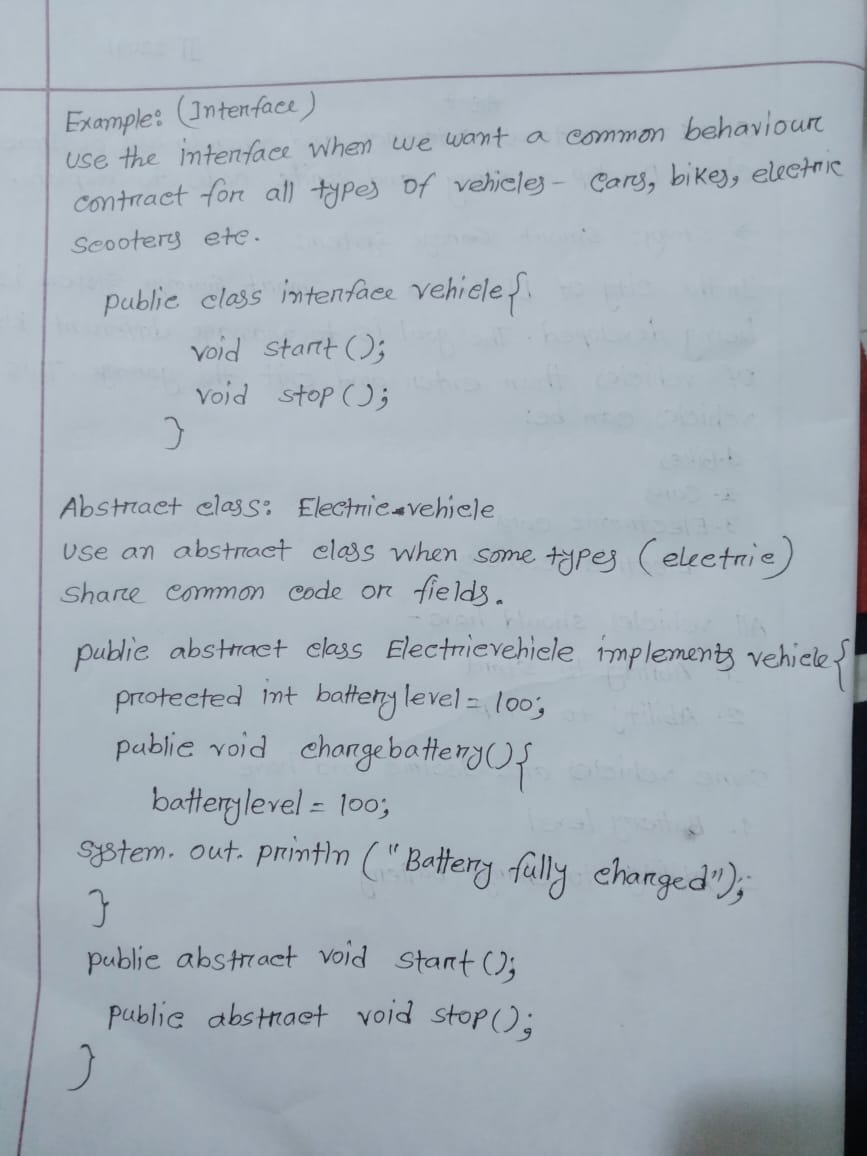 Example: (Interface)
Use the interface when we want a common behaviour
contract for all types of vehicles - Cars, bikes, electric
Scooters etc.
public class interface vehicle {
void start ();
void stop ();
}
Abstract class: Electric-vehicle
Use an abstract class when some types (electric)
Share common code or fields.
public abstract class Electricvehicle implements vehicle {
protected int battery level = 100;
public void chargebattery() {
batterylevel = 100;
System. out. println ("Battery fully charged");
}
public abstract void start ();
public abstract void stop ();
}